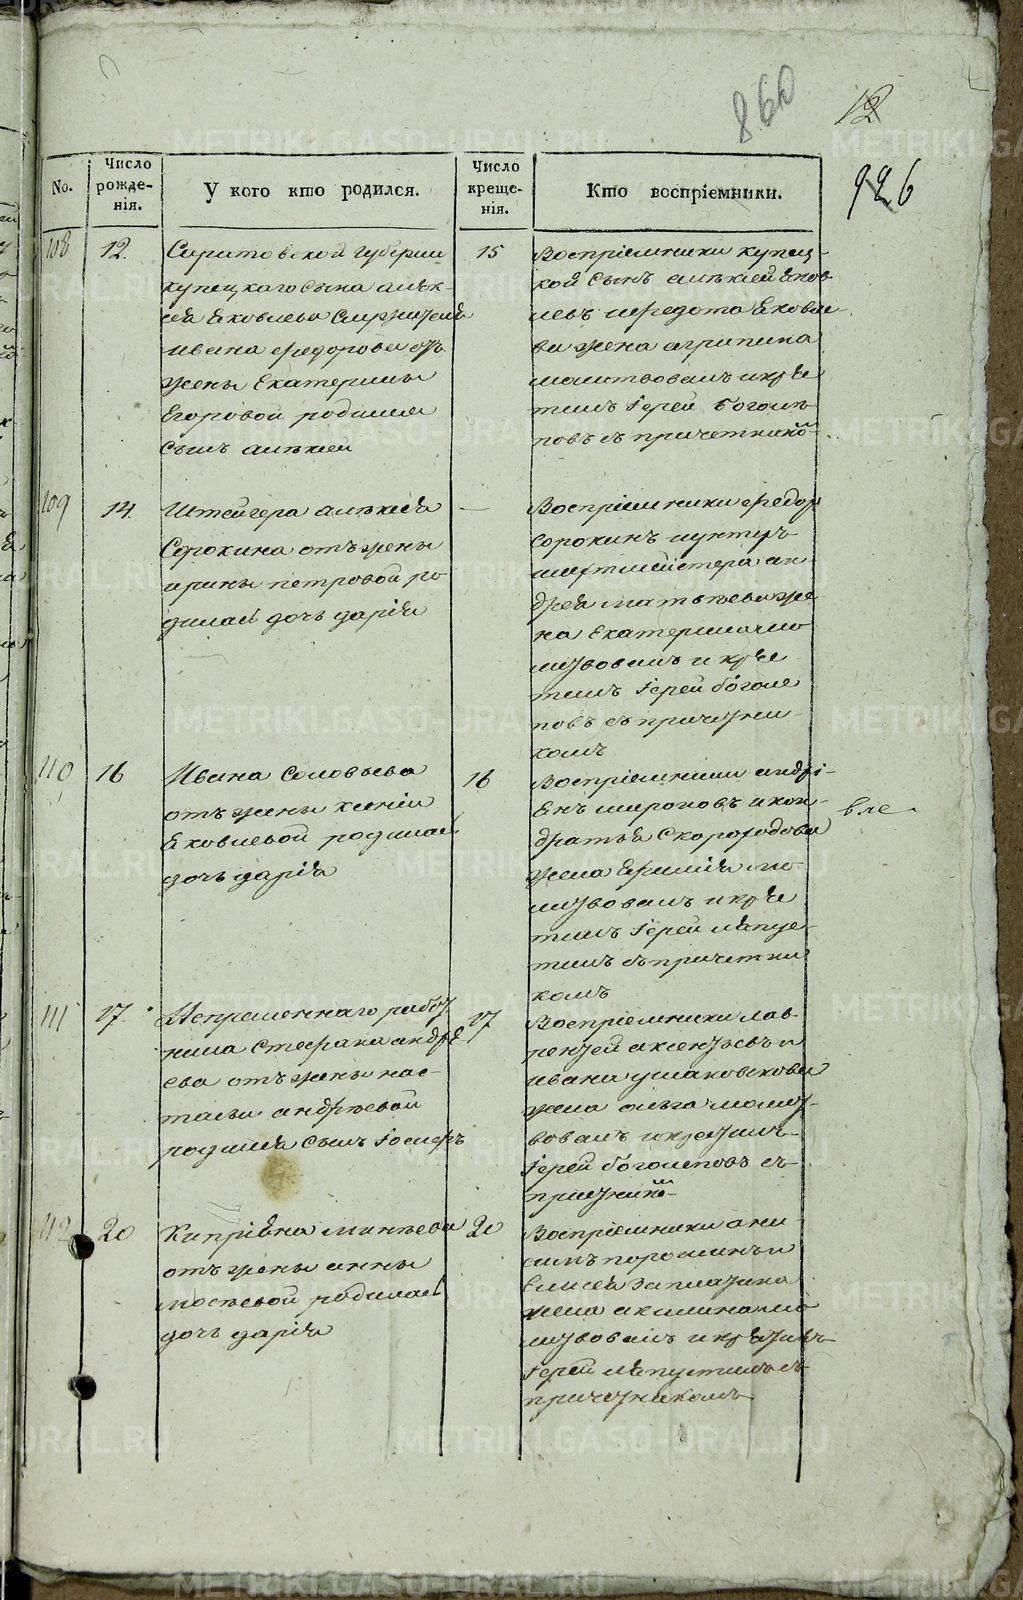 860
12
926
No.
Число рожде-нія.
У кого кто родился.
Число креще-нія.
Кто воспріемники.
108
12.
Саратовской губерни
купецкаго сына алѣк-
сѣя Яковлева
ивана федорова отъ
жены Екатерины
Егоровой родился
сынъ алѣксеи
15
Воспріемники купец-
кой сынъ алѣксѣй Яков
левъ ифедота Яковле
ва жена агрипина
молитвовалъ икре
тилъ Iерей Боголѣ
повъ съ причетнико
109
14.
Штейгера алѣксѣя
Сорокина отъ жены
ирины петровой ро
дилась дочь дарія
—
Воспріемники федор
Сорокинъ иунтеръ
шихтмейстера ан
дрея матвѣева же
на Екатерина мо
литвовалъ и кре
тилъ Iерей боголе
повъ съ причетни-
комъ
110
16
Ивана Соловьева
отъ жены ксении
Яковлевой родилась
дочь дарія
16
Воспріемники андрі-
янъ мироновъ икон-
дратья Скороходова
жена Ефимія мо-
литвовалъ и кре
тилъ Iерей лѣпуе-
тинъ съ причетни
комъ
111
17.
Непременнаго работ
ника Стефана андре
ева отъ жены нас-
тасьи андрѣевой
родился сынъ Iосифъ
17
Воспріемники лав-
рентей аксентьевъ и
ивана ушаковскова
жена ольга молит-
вовалъ икрестилъ
Iерей боголеповъ съ
причетнико
112
20
Кипріяна минѣева
отъ жены анны
мосѣевой родилась
дочь дарія
20
Воспріемники ани-
симъ порошинъ и
Елисея Заплатина
жена акилина мо
литвовалъ и крестилъ
Iерей лѣпустинъ съ
причетникомъ
METRIKI.GASO-URAL.RU